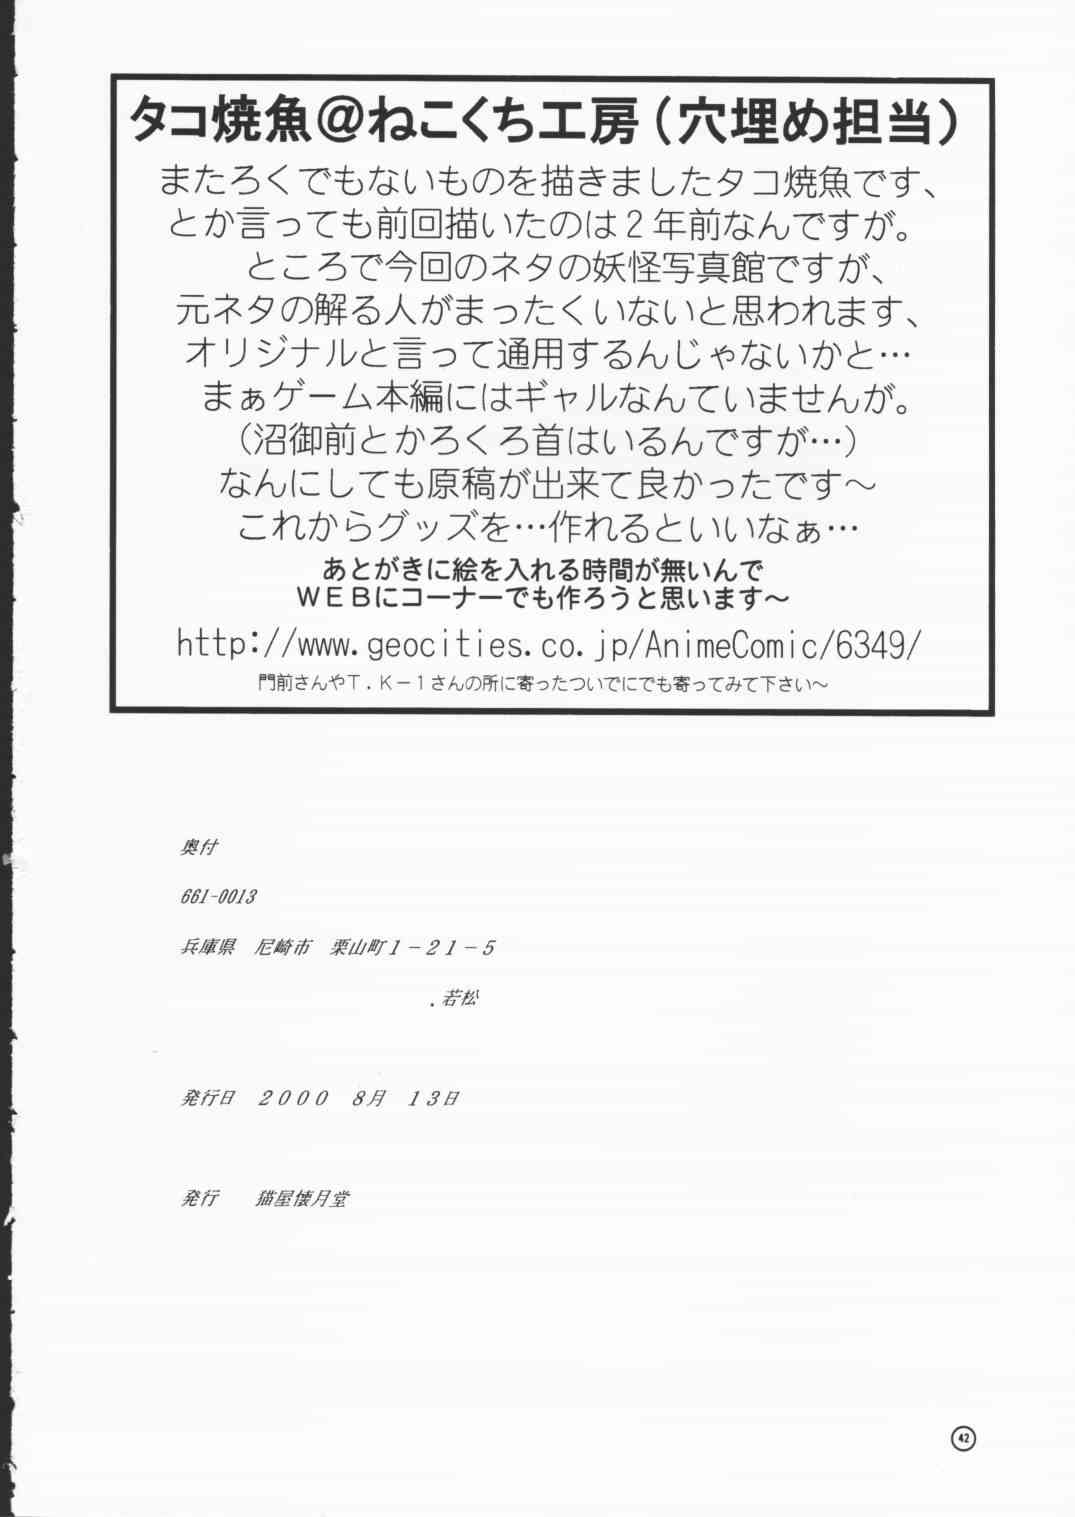 タコ焼魚@ねこくち工房(穴埋め担当)
またろくでもないものを描きましたタコ焼魚です、
とか言っても前回描いたのは2年前なんですが。
ところで今回のネタの妖怪写真館ですが、
元ネタの解る人がまったくいないと思われます、
オリジナルと言って通用するんじゃないかと…
まぁゲーム本編にはギャルなんていませんが。
(沼御前とかろくろ首はいるんですが…)
なんにしても原稿が出来て良かったです～
これからグッズを…作れるといいなぁ…
あとがきに絵を入れる時間が無いんで
WEBにコーナーでも作ろうと思います～
http://www.geocities.co.jp/AnimeComic/6349/
門前さんやT.K-1さんの所に寄ったついでにでも寄ってみて下さい～
奥付
661-0013
兵庫県 尼崎市 栗山町1-21-5
.若松
発行日 2000 8月 13日
発行 猫屋懐月堂
42